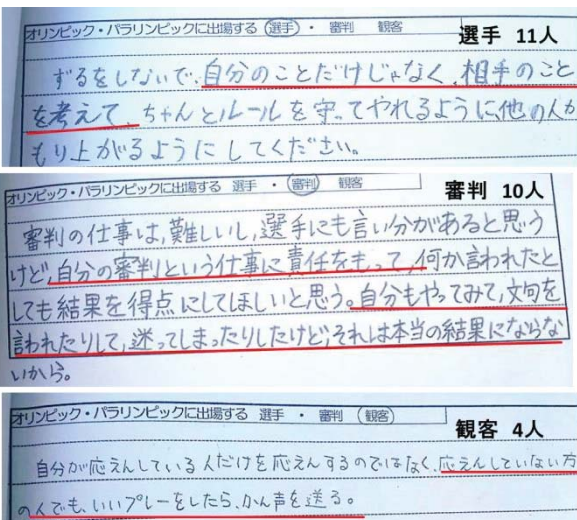 オリンピック・パラリンピックに出場する 選手 ・ 審判 観客
選手 11人
ずるをしないで、自分のことだけじゃなく、相手のこと
を考えて、ちゃんとルールを守ってやれるように、他の人が
もり上がるようにしてください。
オリンピック・パラリンピックに出場する 選手 ・ 審判 観客
審判 10人
審判の仕事は、難しいし、選手にも言い分があると思う
けど、自分の審判という仕事に責任をもって、何か言われたと
しても結果を得点にしてほしいと思う。自分もやってみて、文句を
言われたりして、迷ってしまったりしたけど、それは本当の結果にならな
いから。
オリンピック・パラリンピックに出場する 選手 ・ 審判 観客
観客 4人
自分が応えんしている人だけを応えんするのではなく、応えんしていない方
の人でも、いいプレーをしたら、かん声を送る。